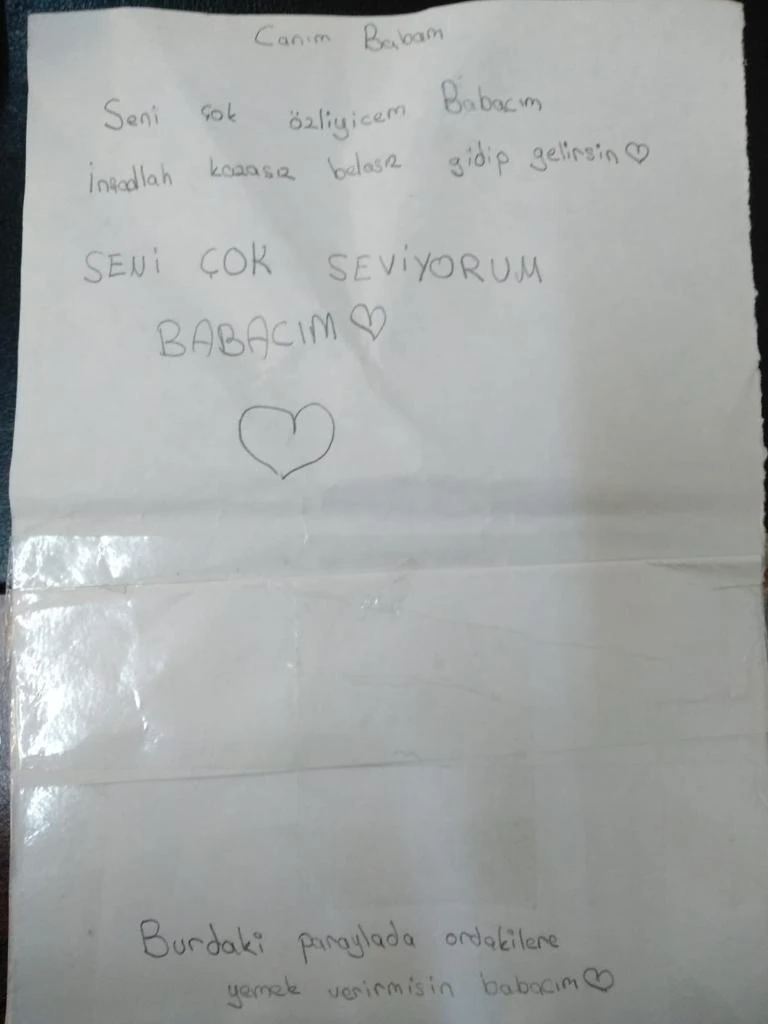 Canım Babam
Seni çok özliyicem Babacım
inşadlah kazasız belasız gidip gelirsin♡
SENİ ÇOK SEVİYORUM
BABACIM♡
Burdaki paraylada ordakilere
yemek verirmisin babacım♡